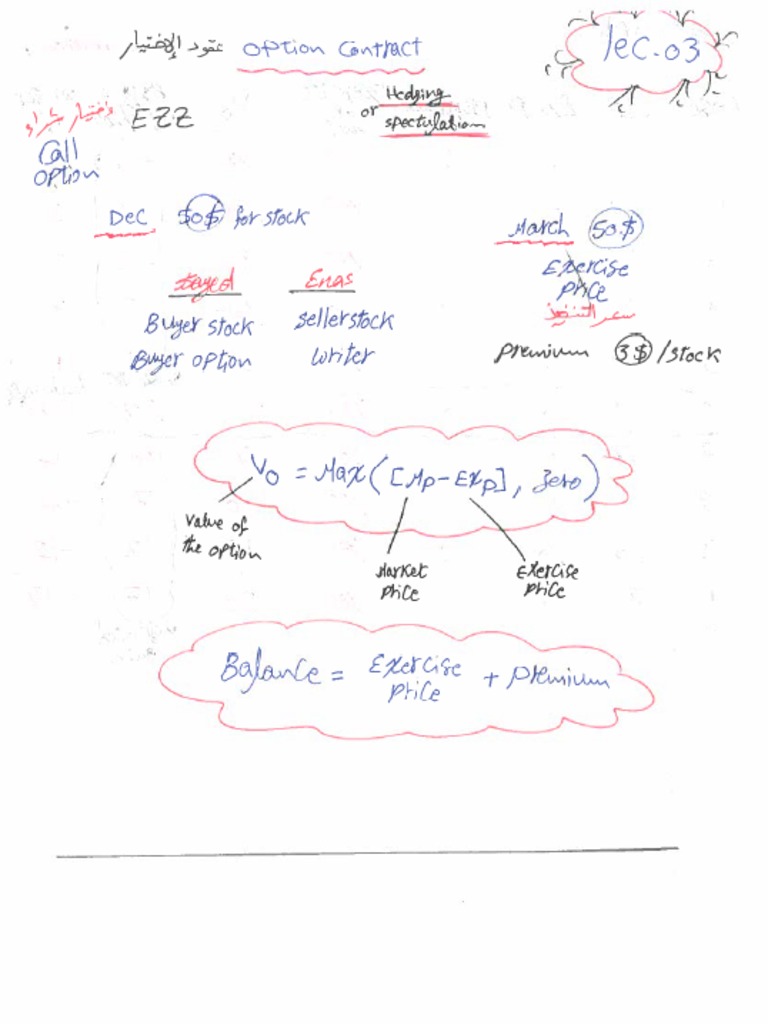 عقود الإختيار Option Contract
lec-03
Hedging
or spectulation
إختيار شراء EZZ
Call
option
Dec 50$ for stock
March 50$
Exercise
price
سعر التنفيذ
Premium 3$/stock
Sayed Enas
Buyer stock seller stock
Buyer option writer
Vo = Max([Mp-Exp], Zero)
value of
the option
Market
price
Exercise
price
Balance = Exercise
price + premium